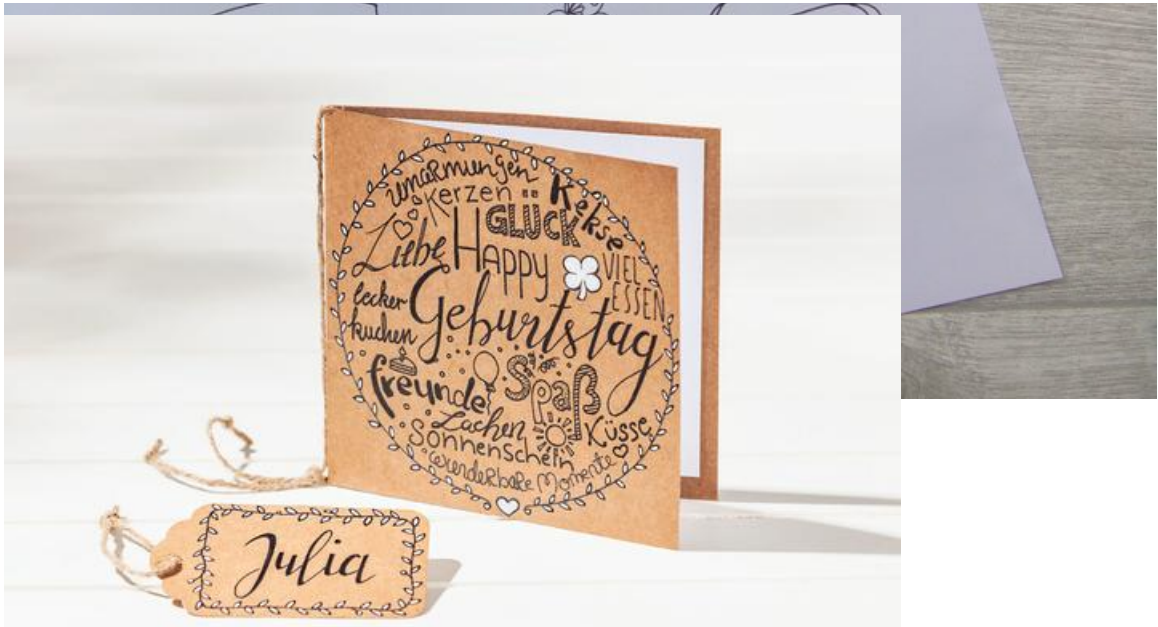 umarmungen
Kerzen
GLÜCK
Kekse
Liebe
HAPPY
VIEL
ESSEN
lecker
kuchen
Geburtstag
freunde
Spaß
Lachen
Küsse
Sonnenschein
wunderbare Momente
Julia